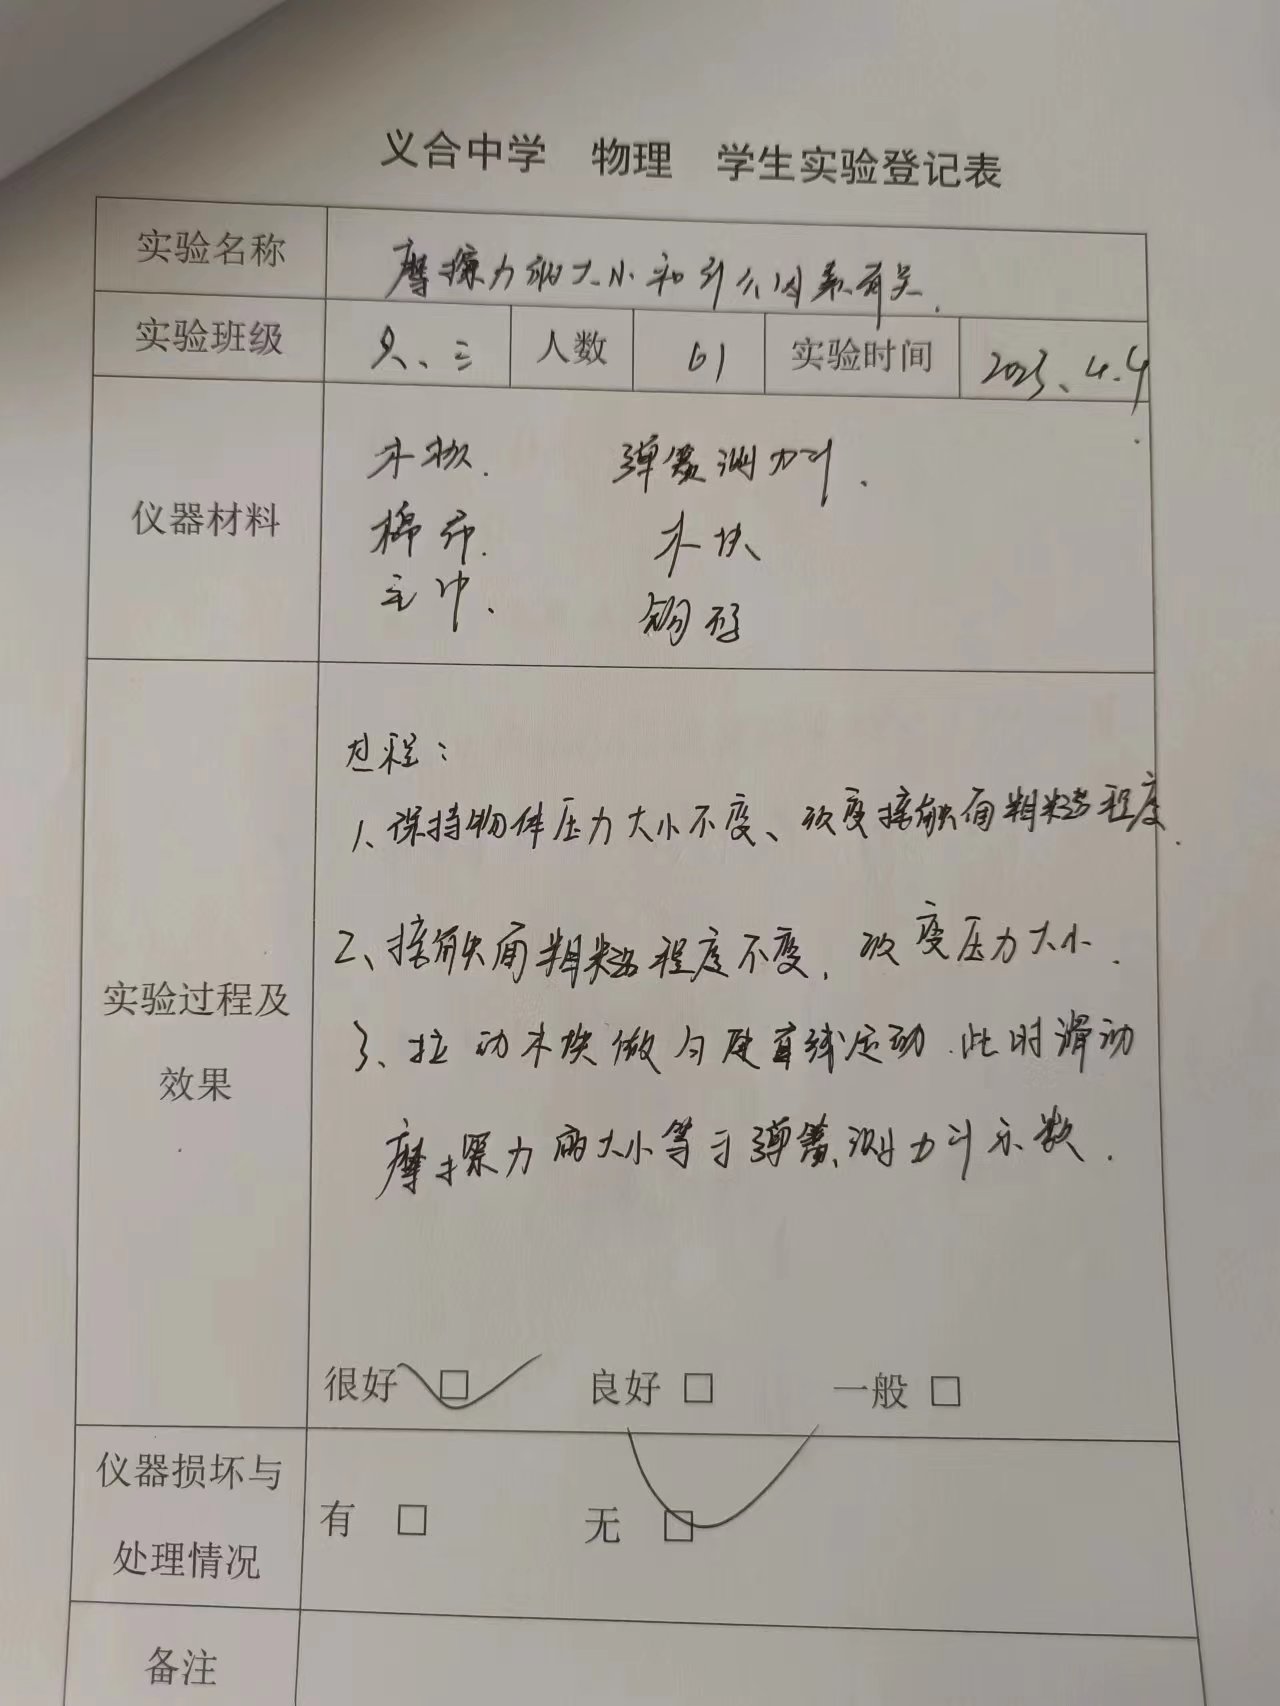 义合中学 物理 学生实验登记表
实验名称 摩擦力的大小和什么因素有关.
实验班级 八、三 人数 61 实验时间 2023、4.4
仪器材料
木板. 弹簧测力计.
棉布. 木块
毛巾、 钩码
实验过程及
效果
过程：
1、保持物体压力大小不变、改变接触面粗糙程度.
2、接触面粗糙程度不变，改变压力大小.
3、拉动木块做匀速直线运动.此时滑动
摩擦力的大小等于弹簧测力计示数.
很好 □ 良好 □ 一般 □
仪器损坏与
处理情况
有 □ 无 □
备注